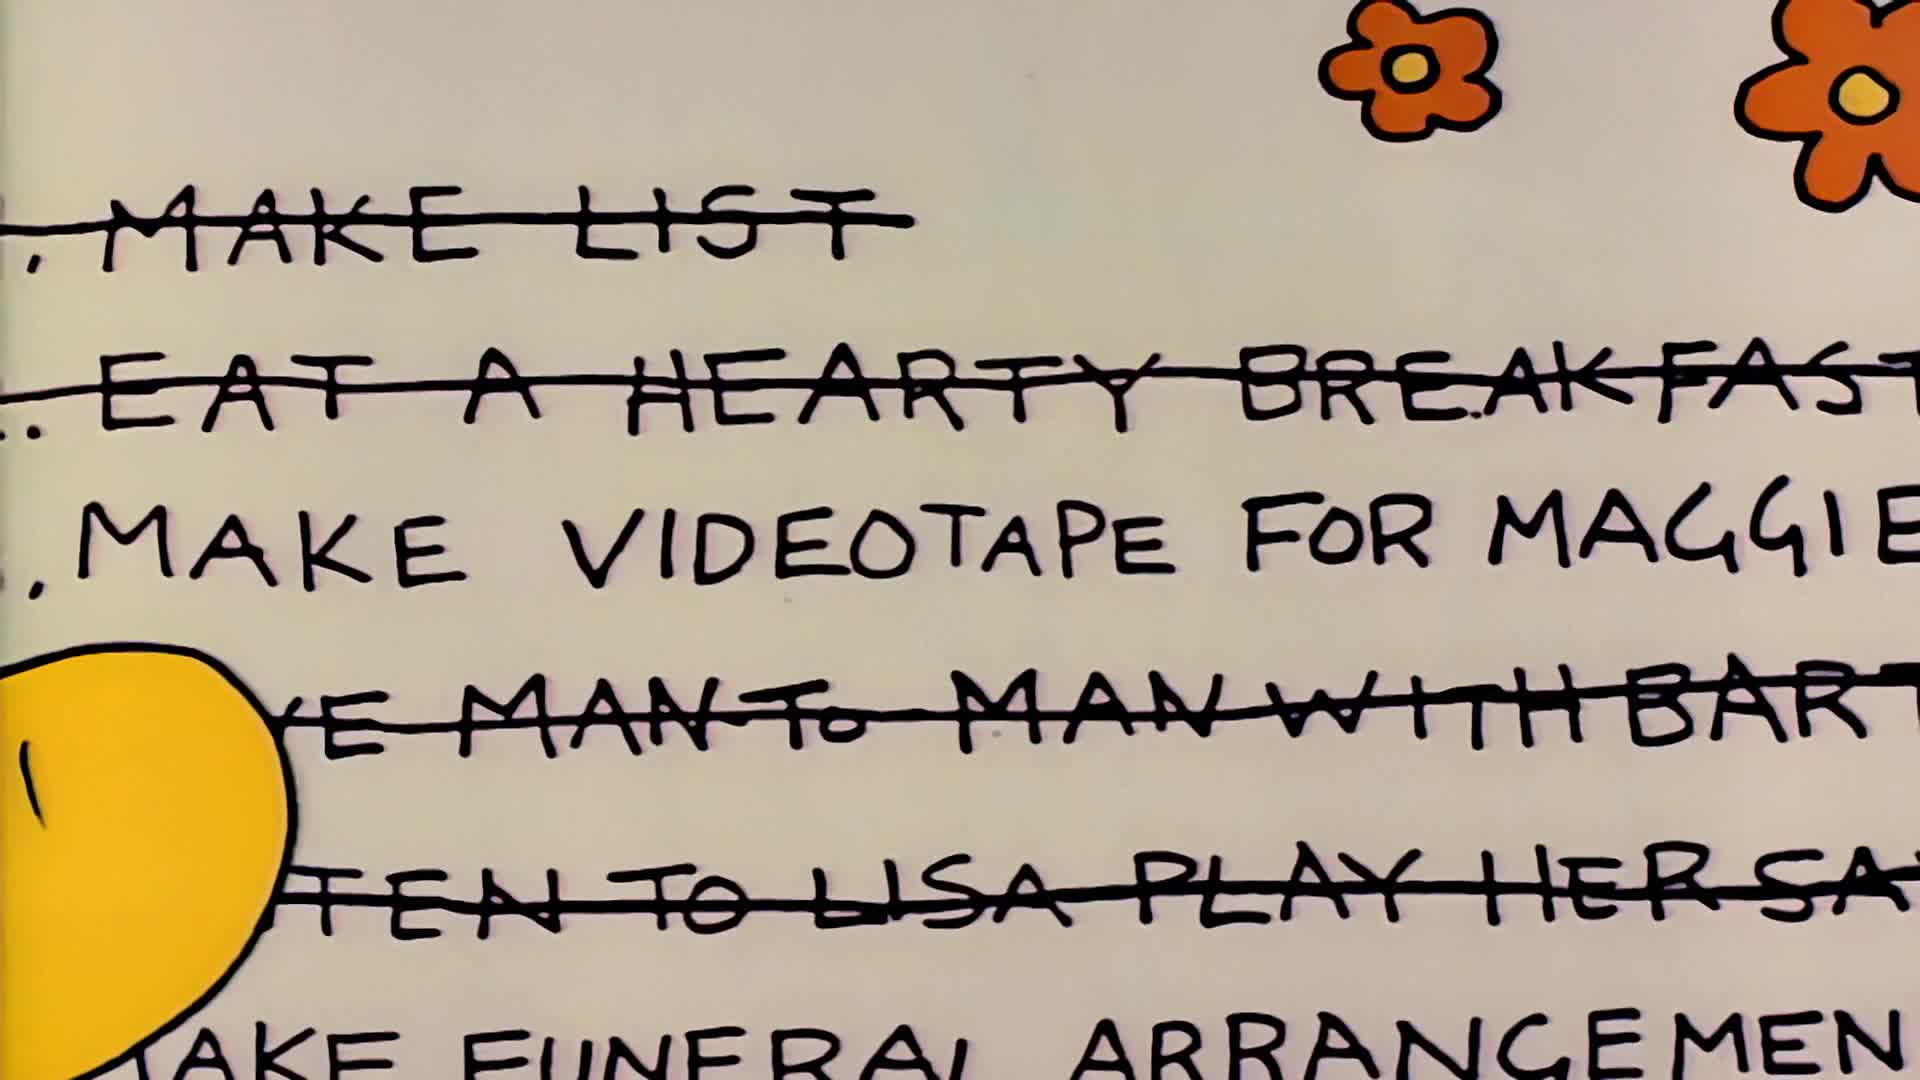 . MAKE LIST
.. EAT A HEARTY BREAKFAST
. MAKE VIDEOTAPE FOR MAGGIE
MAN TO MAN WITH BART
TEN TO LISA PLAY HER SA
AKE FUNERAL ARRANGEMEN